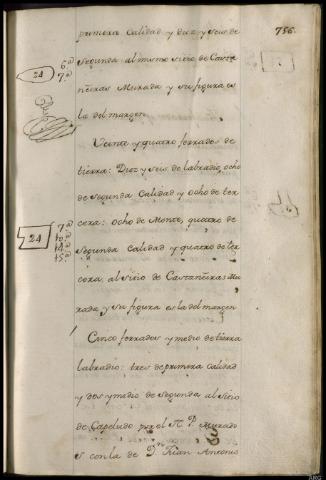 756.
primera Calidad y diez y seis de
Segunda: al mismo sitio de Casta
ñeiras Murada y su figura es
la del margen
6.ª
7.ª
24
Veinte y quatro ferrados de
tierra: Diez y seis de labradío, ocho
de Segunda Calidad y ocho de ter
cera: ocho de Monte, quatro de
Segunda Calidad y quatro de ter
cera, al sitio de Castañeiras Mu
rada y su figura es la del margen
7.ª
24
15.ª
Cinco ferrados y medio de tierra
labradío: tres de primera calidad
y dos y medio de Segunda al sitio
de Capeludo por el N. P. Murado
es con la de D.n Juan Antonio
ARG